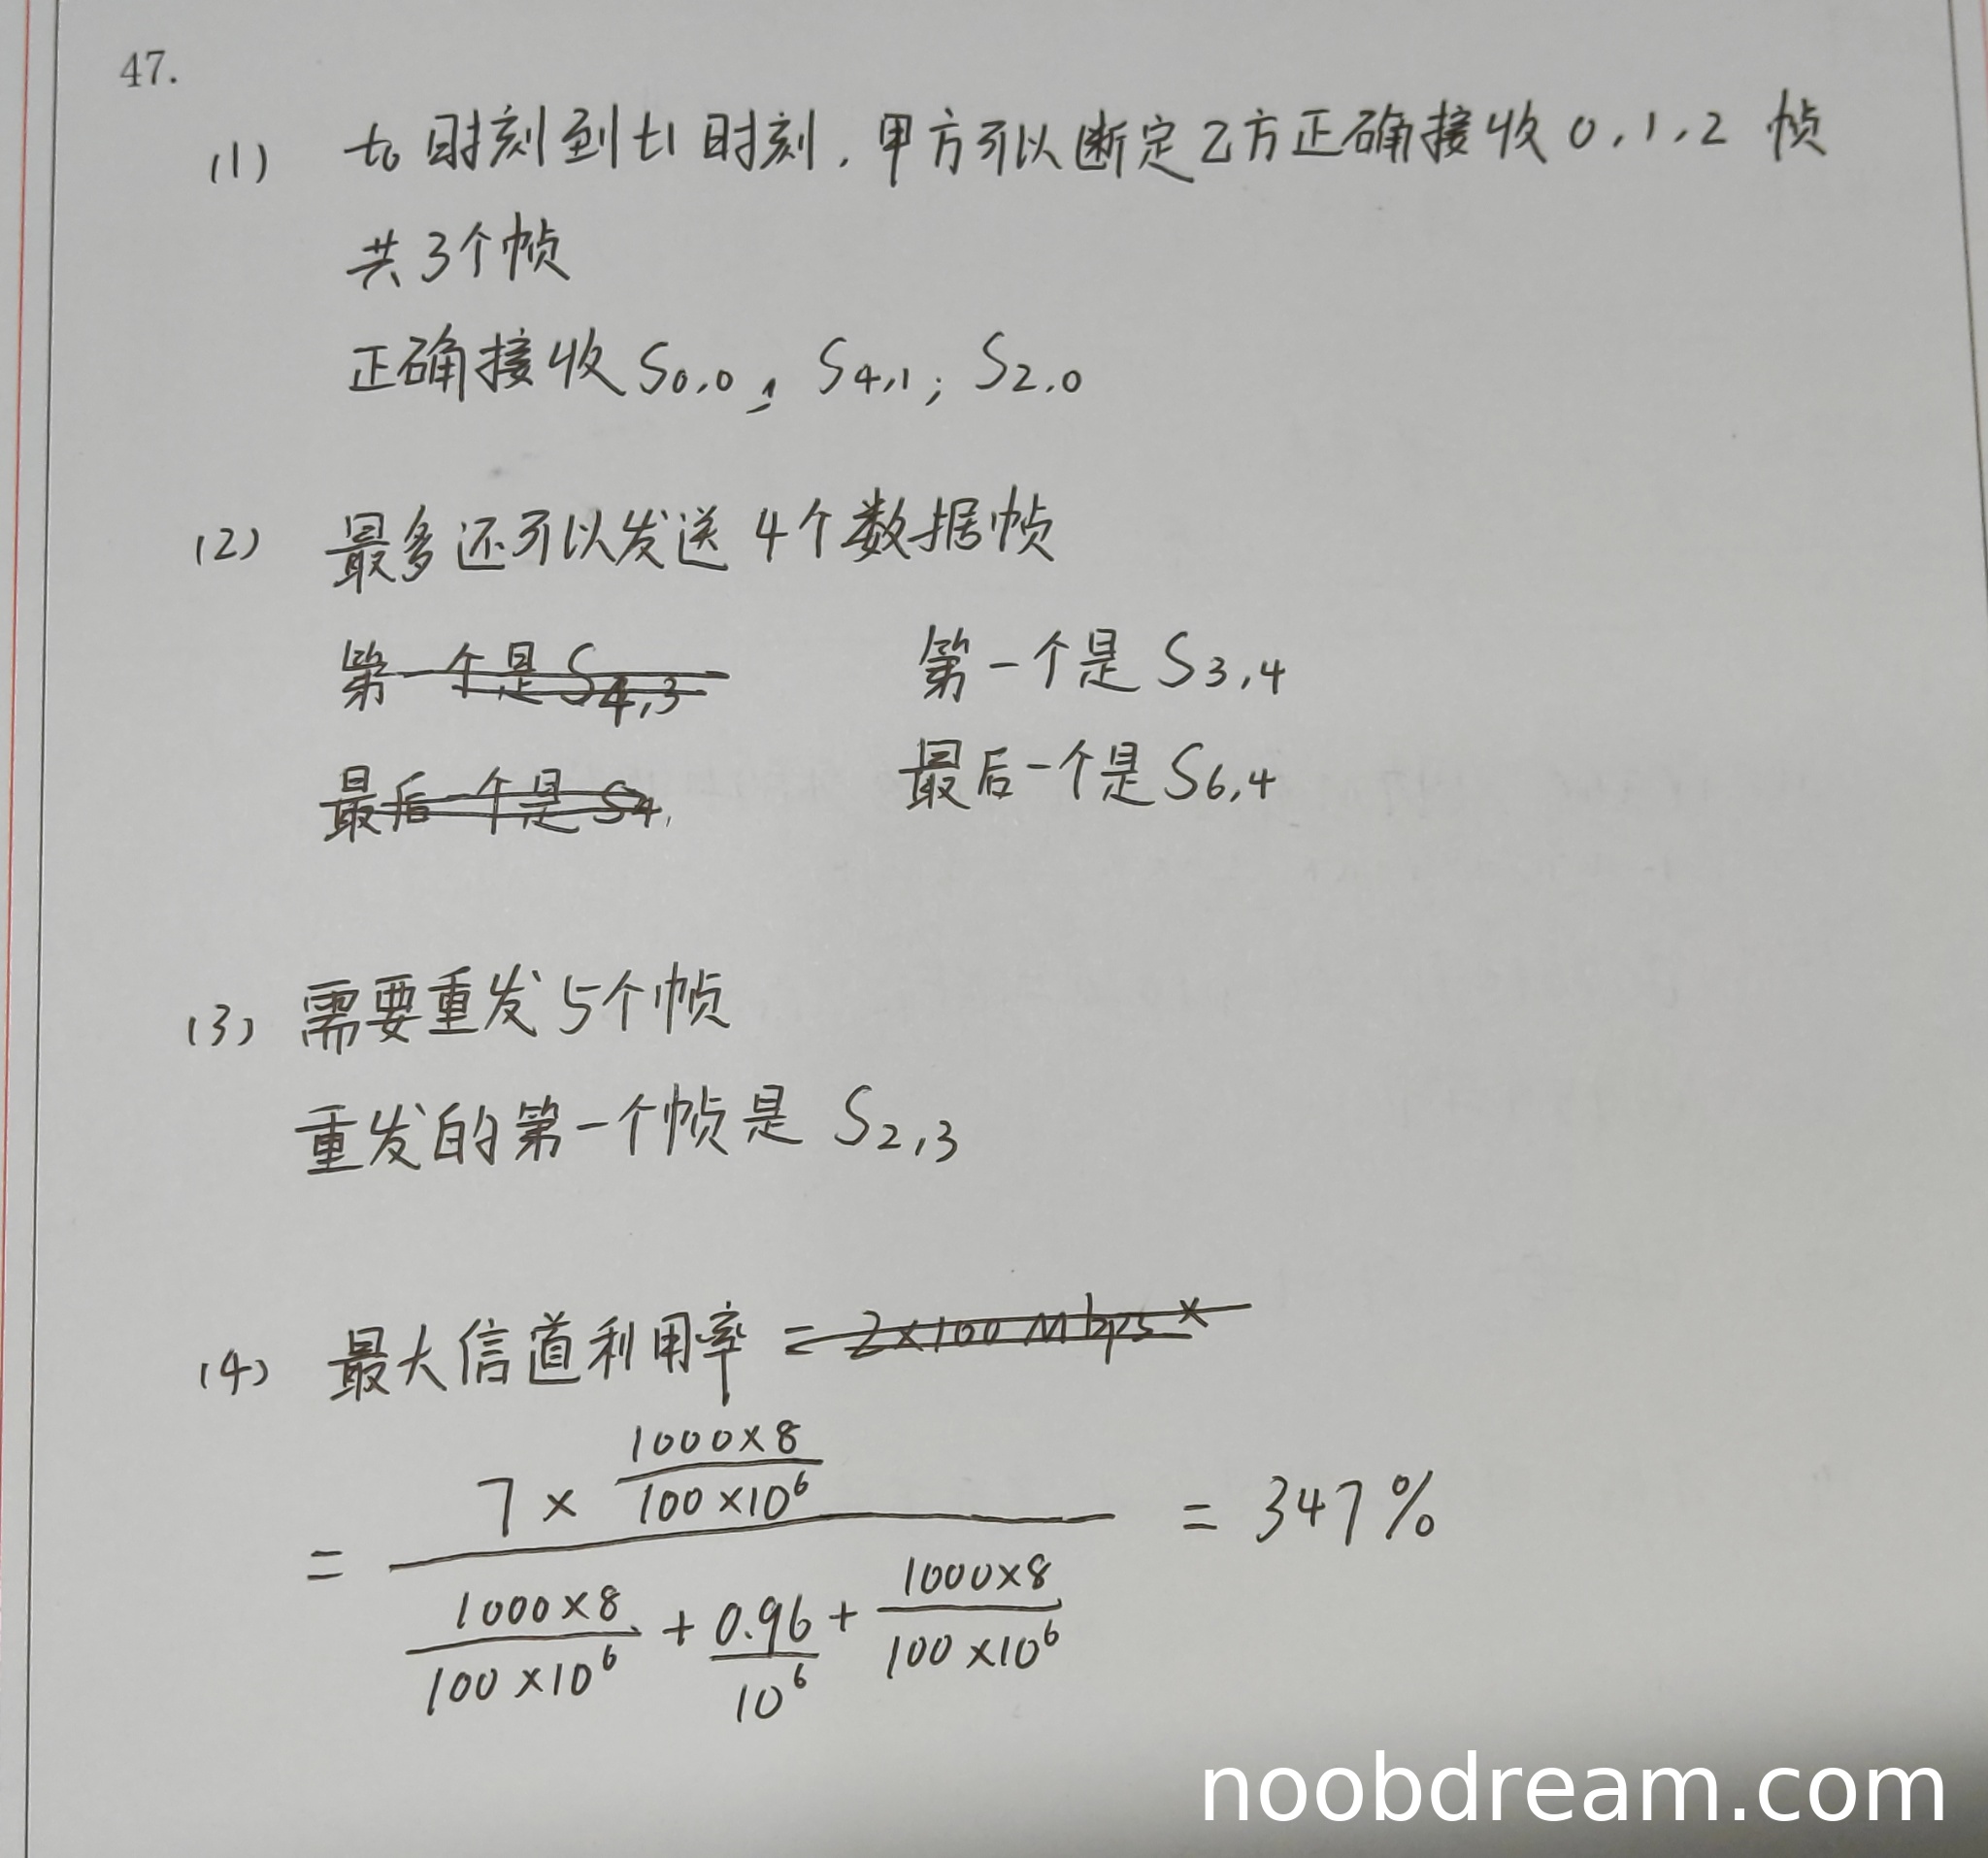 47.
(1) t₀时刻到t1时刻，甲方可以断定乙方正确接收0,1,2 帧
共3个帧
正确接收 S₀,₀， S₄,₁； S₂,₀
(2) 最多还可以发送 4个数据帧
第一个是 S₄,₃ 第一个是 S₃,₄
最后一个是 S₄, 最后一个是 S₆,₄
(3) 需要重发 5个帧
重发的第一个帧是 S₂,₃
(4) 最大信道利用率 = 2×100Mbps×
= (7 × (1000×8)/(100×10⁶)) / ((1000×8)/(100×10⁶) + 0.96/10⁶ + (1000×8)/(100×10⁶)) = 347%
noobdream.com